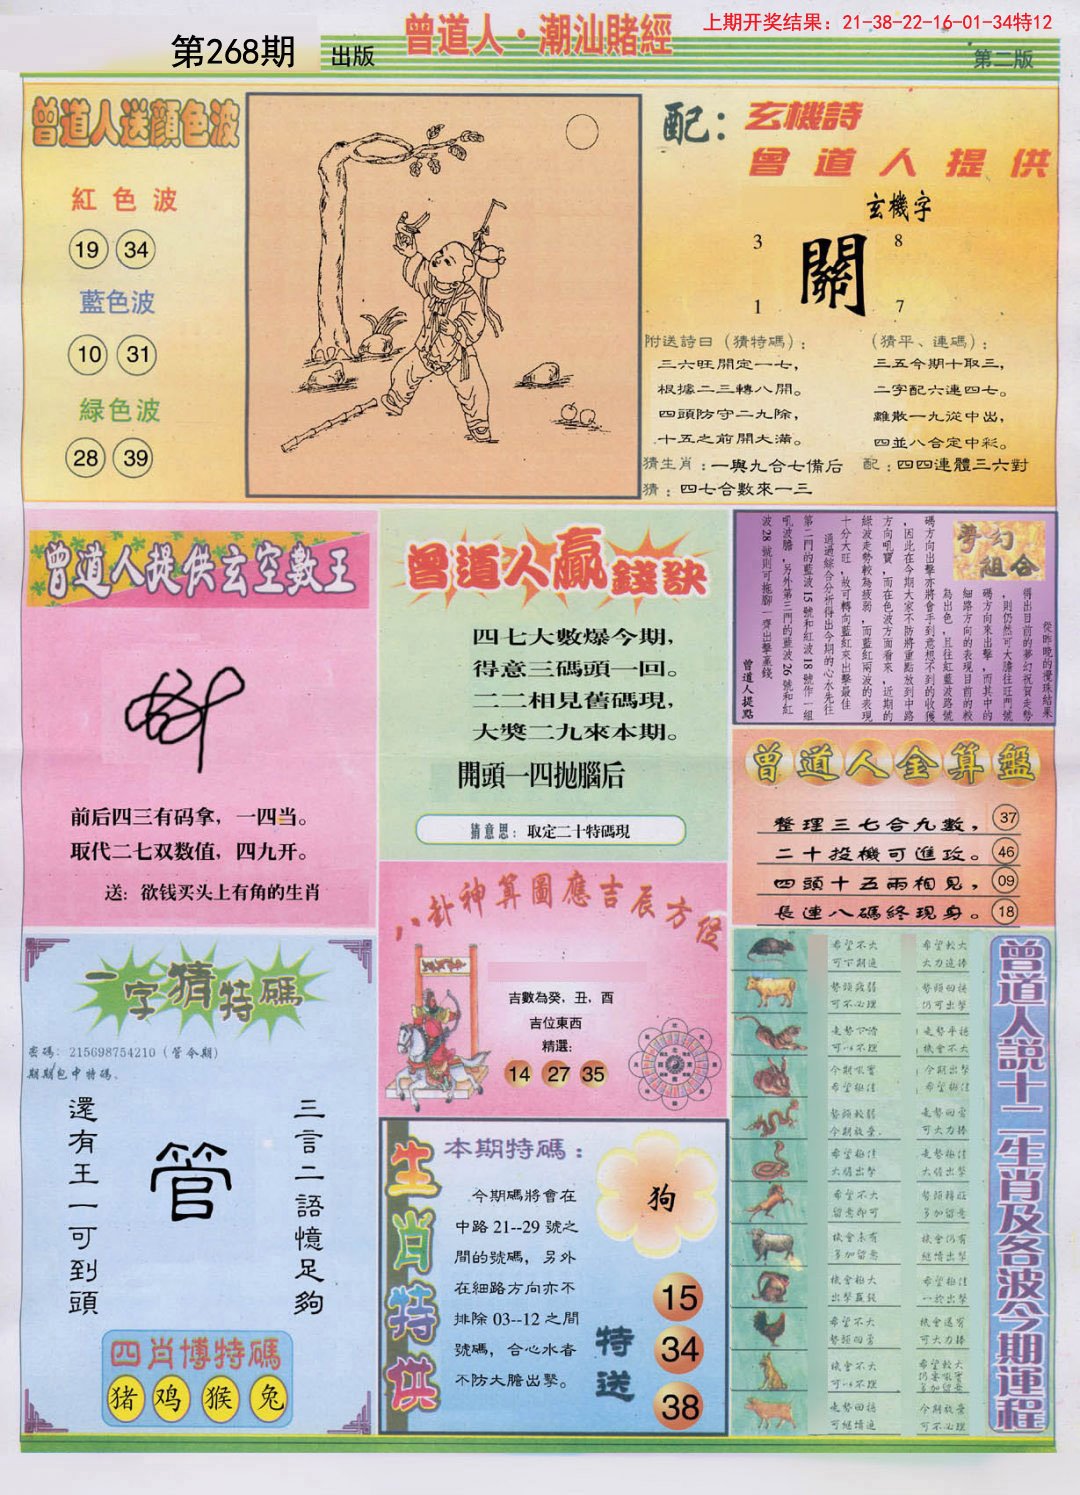 上期开奖结果：21-38-22-16-01-34特12
第268期 出版
曾道人·潮汕賭經
第二版
曾道人送顏色波
紅色波
19 34
藍色波
10 31
緑色波
28 39
配：玄機詩
曾道人提供
玄機字
3 8
關
1 7
附送詩曰（猜特碼）：
三六旺開定一七，
根據二三轉八開。
四頭防守二九除，
十五之前開大滿。
（猜平、連碼）：
三五今期十取三，
二字配六連四七。
離散一九從中出，
四並八合定中彩。
猜生肖：一與九合七備后
配：四四連體三六對
猜：四七合數來一三
曾道人提供玄空數王
前后四三有码拿，一四当。
取代二七双数值，四九开。
送：欲钱买头上有角的生肖
曾道人贏錢訣
四七大數爆今期，
得意三碼頭一回。
二二相見舊碼現，
大獎二九來本期。
開頭一四抛腦后
猜意思：取定二十特碼現
夢幻組合
從昨晚的攪珠結果
得出目前的夢幻祝賀走勢
，則仍然可大膽往旺門號
碼方向來出擊，而其中的
細路方向的表現目前的較
為出色，且往紅藍波路號
碼方向出擊亦將會手到意想不到的收獲
，因此在今期大家不防將重點放到中路
方向吼寶，而在色波方面看來，近期的
綠波走勢較為疲弱，而藍紅兩波的表現
十分大旺，故可轉向藍紅來出擊最佳
通過綜合分析得出今期的心水先往
第二門的藍波15號和紅波18號作一組
吼波膽，另外第三門的藍波26號和紅
波28號則可拖腳一齊出擊贏錢
曾道人提點
曾道人金算盤
整理三七合九數， 37
二十投機可進攻。 46
四頭十五兩相見， 09
長連八碼終現身。 18
八卦神算圖應吉辰方位
吉數為癸，丑，酉
吉位東西
精選：
14 27 35
一字猜特碼
密碼：215698754210（管令期）
期期包中特碼、
三言二語憶足夠
管
還有王一可到頭
四肖博特碼
猪 鸡 猴 兔
生肖特供
本期特碼：
今期碼將會在
中路21--29號之
間的號碼，另外
在細路方向亦不
排除03--12之間
號碼，合心水者
不防大膽出擊。
狗
特送
15
34
38
曾道人說十二生肖及各波今期運程
希望不大
可下期追
希望較大
大力追捧
走勢平穩
機會不大
今期吼寶
希望極佳
今期出擊
希望極佳
勢頭較弱
今期放棄.
走勢回雷
可大力捧
希望極佳
大膽出擊
走勢極佳
大膽出擊
希望不大
留意即可
機會未有
多加留意
機會仍有
繼續出擊
機會極大
希望極佳
希望不大
機會不大
希望較大
多加留意
走勢回穩
可繼續追
今期放棄
可不必理